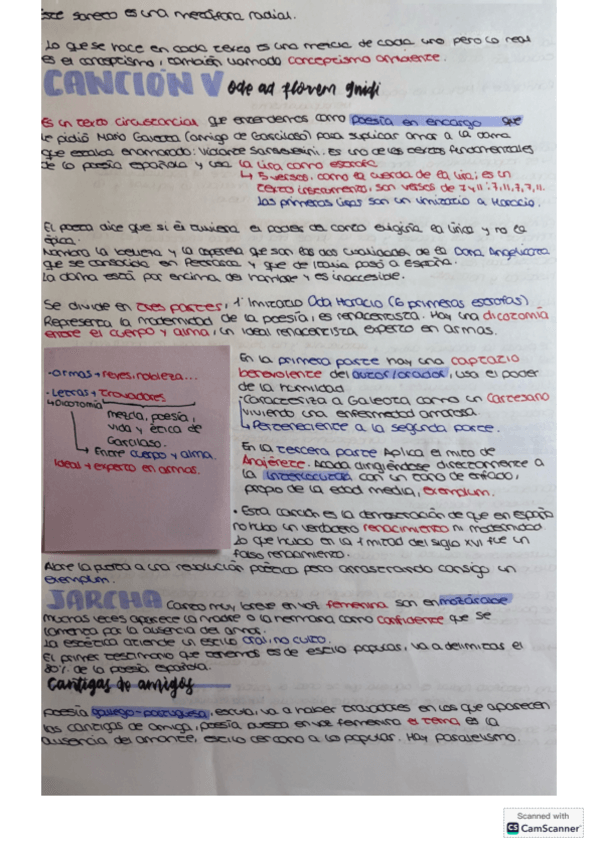 Este soneto es una metáfora radial.
Lo que se hace en cada texto es una mezcla de cada uno pero lo real
es el conceptismo, también llamado conceptismo amoroso.
CANCIÓN V Ode ad florem Gnidi
Es un texto circunstancial que entendemos como poesía en encargo que
le pidió Mario Galeota (amigo de Garcilaso) para suplicar amor a la dama
que estaba enamorado: Violante Sanseverini. Es uno de los textos fundamentales
de la poesía española y usa la lira como estrofa
↳ 5 versos, como la cuerda de la lira; es un
texto, son versos de 7 y 11: 7, 11, 7, 7, 11.
Las primeras liras son un imitazio a Horacio.
El poeta dice que si él tuviera el poder del canto eligiría la lírica y no la
épica.
Nombra la belleza y la aspereza que son las dos cualidades de la Dona Angelicata
que se consolida en Petrarca y que de Italia pasó a España.
La dama está por encima del hombre y es inaccesible.
Se divide en tres partes, 1º Imitazio Oda Horacio (6 primeras estrofas)
Representa la modernidad de la poesía, es renacentista. Hay una dicotomía
entre el cuerpo y alma, un ideal renacentista experto en armas.
· Armas → reyes, nobleza...
· Letras → trovadores
↳ Dicotomía
mezcla, poesía,
vida y ética de
Garcilaso.
↳ Entre cuerpo y alma.
Ideal → experto en armas.
En la primera parte hay una captazio
benevolente del autor/orador, usa el poder
de la humildad
· Caracteriza a Galeota como un cortesano
viviendo una enfermedad amorosa.
↳ Perteneciente a la segunda parte.
En la tercera parte aplica el mito de
Anajérete. Acaba dirigiéndose directamente a
la interlocutora con un tono de enfado,
propio de la edad media, exemplum.
· Esta canción es la demostración de que en España
no hubo un verdadero renacimiento ni modernidad
lo que hubo en la 1ª mitad del siglo XVI fue un
falso renacimiento.
Abre la puerta a una revolución poética pero arrastrando consigo un
exemplum.
JARCHA Canto muy breve en voz femenina son en mozárabe
muchas veces aparece la madre o la hermana como confidente que se
lamenta por la ausencia del amor.
La estética atiende un estilo oral, no culto.
El primer testimonio que tenemos es de estilo popular, va a delimitar el
80% de la poesía española.
Cantigas de amigos
Poesía gallego-portuguesa, escrita, va a haber trovadores en los que aparecen
las cantigas de amigo, poesía puesta en voz femenina el tema es la
ausencia del amante, estilo cercano a lo popular. Hay paralelismo.
Scanned with
CS CamScanner